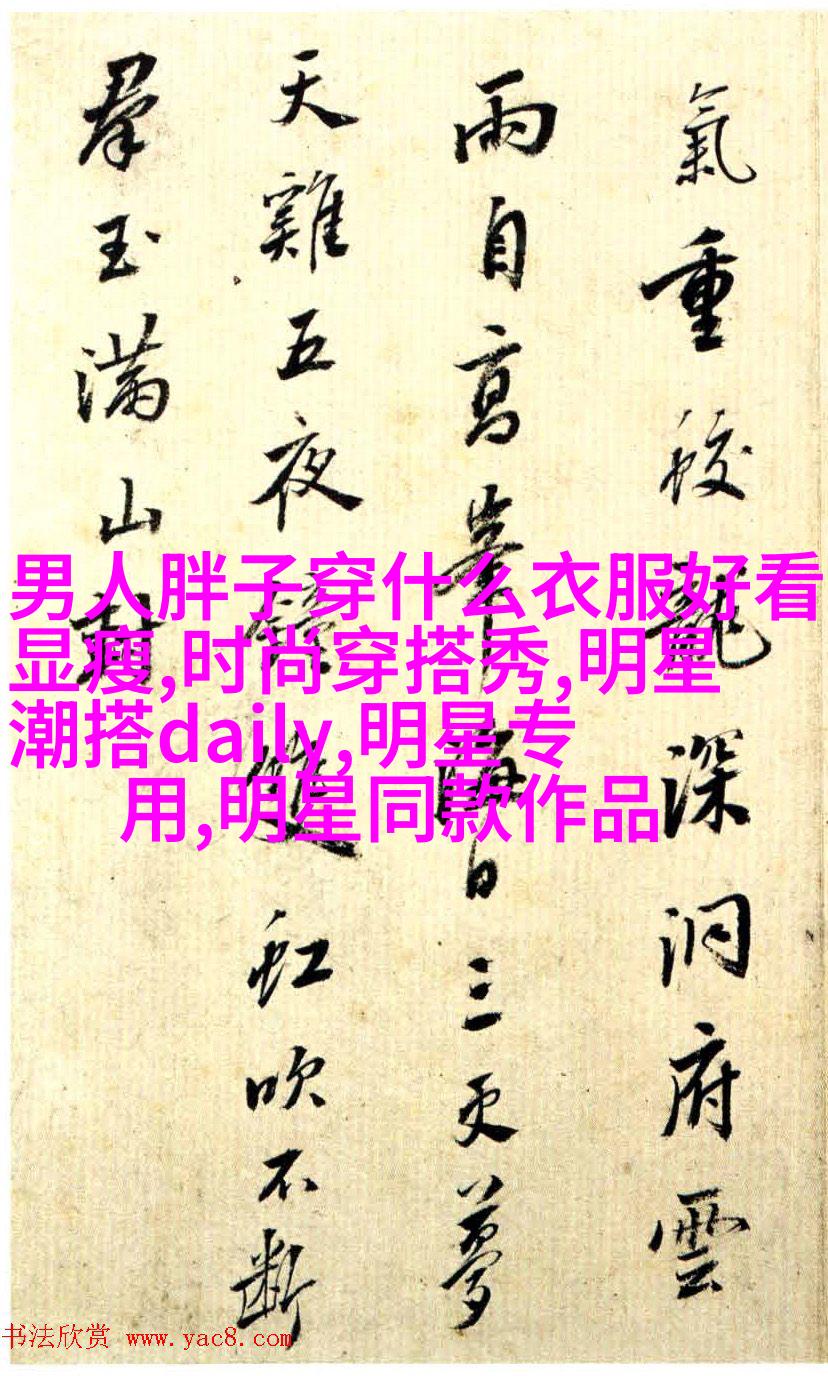 氣重蛟龍深洞府雲
雨自高峯海日三更夢
天雞五夜鐘虹吹不斷
羣玉滿山
男人胖子穿什么衣服好看
显瘦,时尚穿搭秀,明星
潮搭daily,明星专
用,明星同款作品
书法欣赏 www.yac8.com